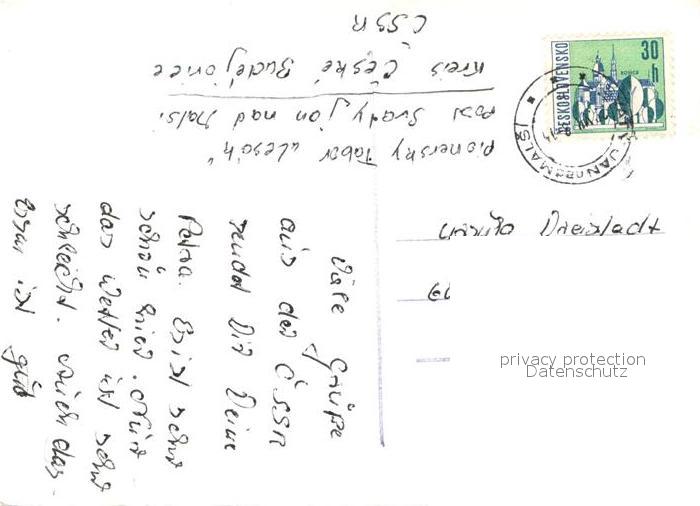 Viele Grüße
aus der ČSSR
sendet Dir Deine
Petra. Es ist sehr
schön hier. Nur
das Wetter ist sehr
schlecht. Auch das
Essen ist gut
Pionersky Tabor „Lesák"
Post Svatý Jan nad Mals.
Kreis České Budějovice
ČSSR
ČESKOSLOVENSKO
30
h
JAN nad MALŠÍ
Dreistadt
privacy protection
Datenschutz